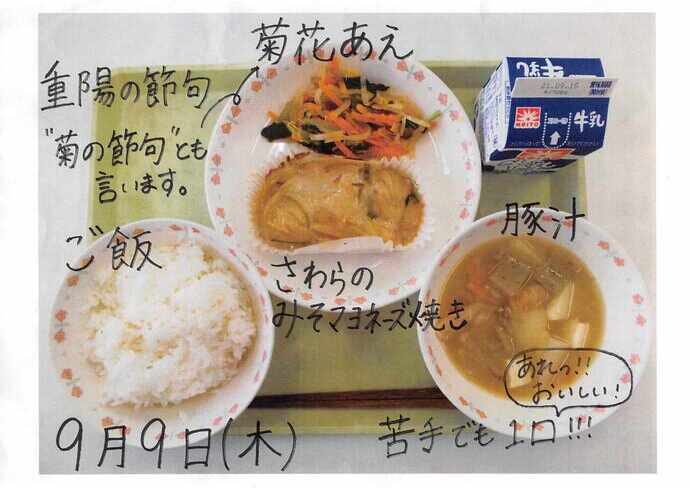 菊花あえ
重陽の節句
"菊の節句"とも
言います。
21.09.15
牛乳
ご飯
豚汁
さわらの
みそマヨネーズ焼き
あれっ!!
おいしい!
9月9日(木)
苦手でも1口!!!